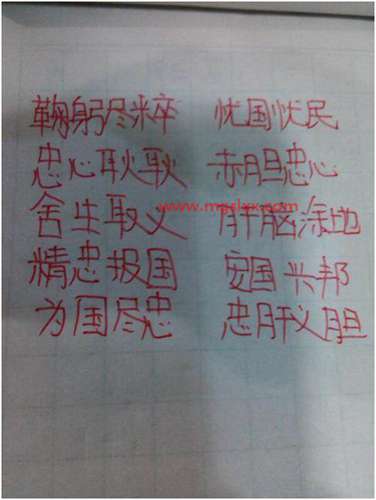 鞠躬尽粹 忧国忧民
忠心耿耿 赤胆忠心
舍生取义 肝脑涂地
精忠报国 安国兴邦
为国尽忠 忠肝义胆